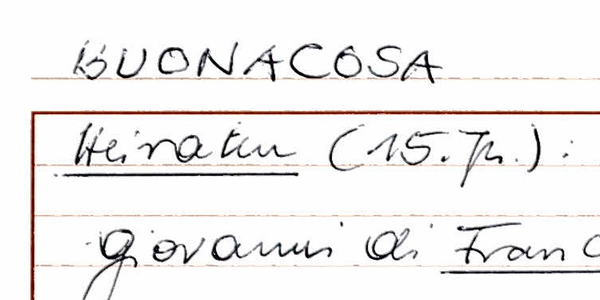 BUONACOSA
Heiraten (15. Jh.):
Giovanni di Franc